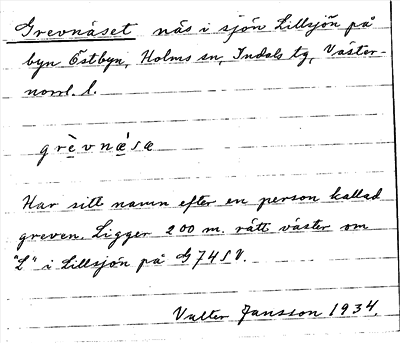 Grevnäset näs i sjön Lillsjön på
byn Östbyn, Holms sn, Indals tg, Väster-
norrl. l.
grèvnæ̀sæ
Har sitt namn efter en person kallad
greven. Ligger 200 m. rätt väster om
"L" i Lillsjön på G74SV.
Valter Jansson 1934.